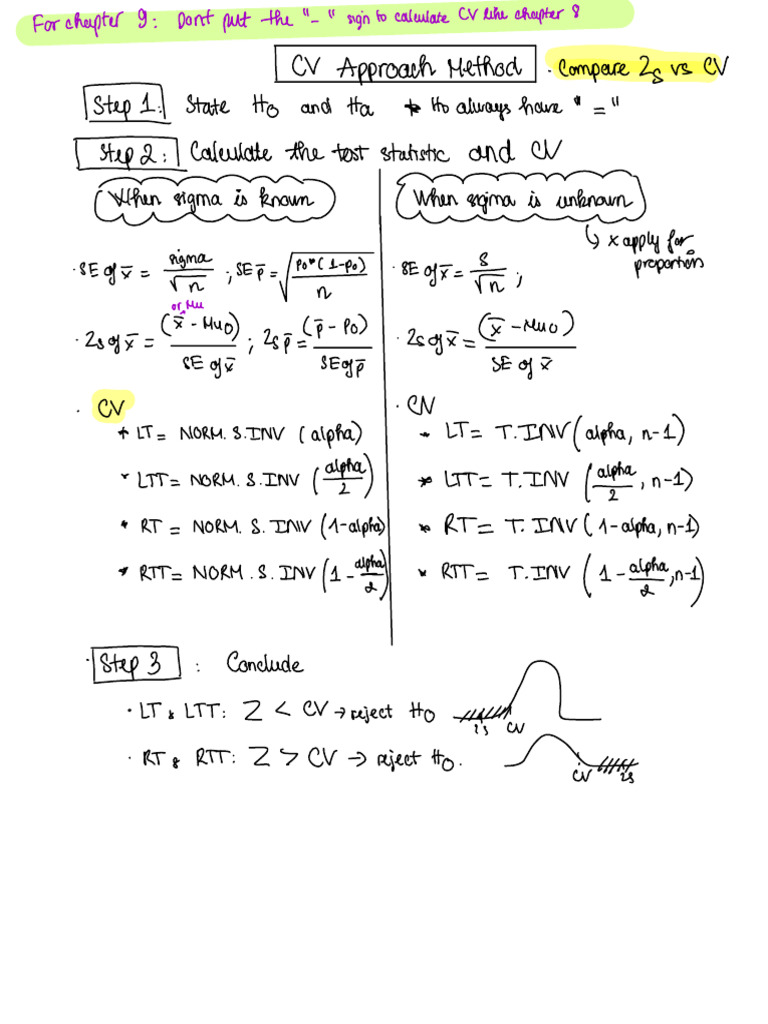 For chapter 9: Dont put the "-" sign to calculate CV like chapter 8
CV Approach Method · Compare Zs vs CV
Step 1: State H0 and Ha * H0 always have "="
Step 2: Calculate the test statistic and CV
When sigma is known
· SE of x̄ = sigma/√n ; SE p̄ = √(p0*(1-p0)/n)
or Mu
· Zs of x̄ = (x̄ - Mu0)/SE of x̄ ; Zs p̄ = (p̄ - P0)/SE of p̄
· CV
+ LT = NORM.S.INV (alpha)
* LTT = NORM.S.INV (alpha/2)
* RT = NORM.S.INV (1-alpha)
* RTT = NORM.S.INV (1 - alpha/2)
When sigma is unknown
↳ x apply for
proportion
· SE of x̄ = s/√n ;
· Zs of x̄ = (x̄ - Mu0)/SE of x̄
· CV
* LT = T.INV (alpha, n-1)
* LTT = T.INV (alpha/2, n-1)
* RT = T.INV (1-alpha, n-1)
* RTT = T.INV (1 - alpha/2, n-1)
· Step 3 : Conclude
· LT & LTT: Z < CV → reject H0
zs CV
· RT & RTT: Z > CV → reject H0.
CV zs